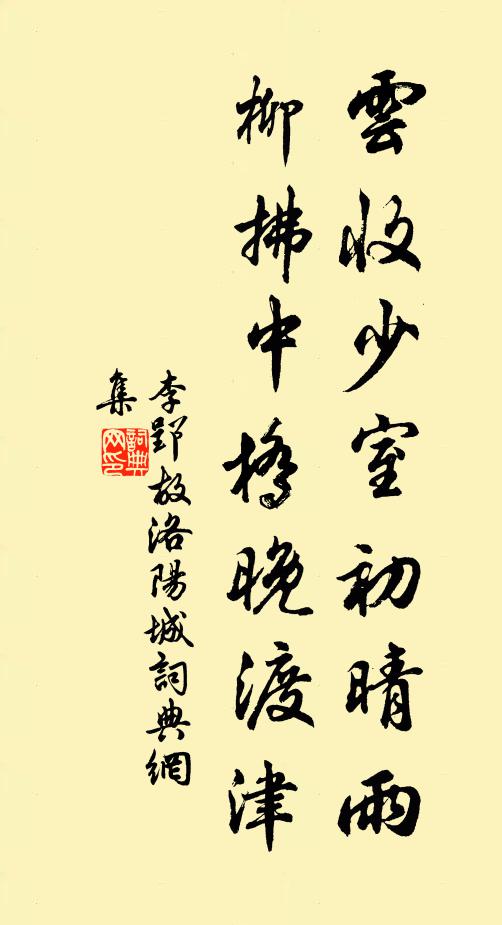 雲收少室初晴雨
柳拂中橋晚渡津
李郢故洛陽城詞典網
集
詞典
网印